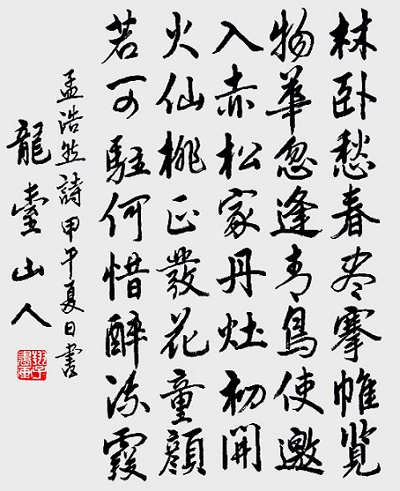 林卧愁春尽搴帷览
物華忽逢青鳥使邀
入赤松家丹灶初開
火仙桃正發花童顏
若可駐何惜醉流霞
孟浩然詩甲午夏日書
龍臺山人